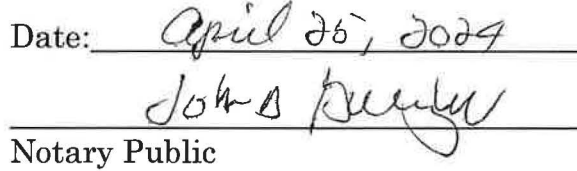 Date: April 25, 2024
John B
Notary Public